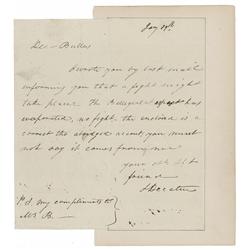 Jany 29th
Dear Butler
I wrote you by last mail
informing you that a fight might
take place. The Belligerent aspect has
evaporated, no fight. the enclosed is a
correct the account, you must
not say it comes from me
your
friend
S Decatur
P.S. my compliments to
Mrs B.